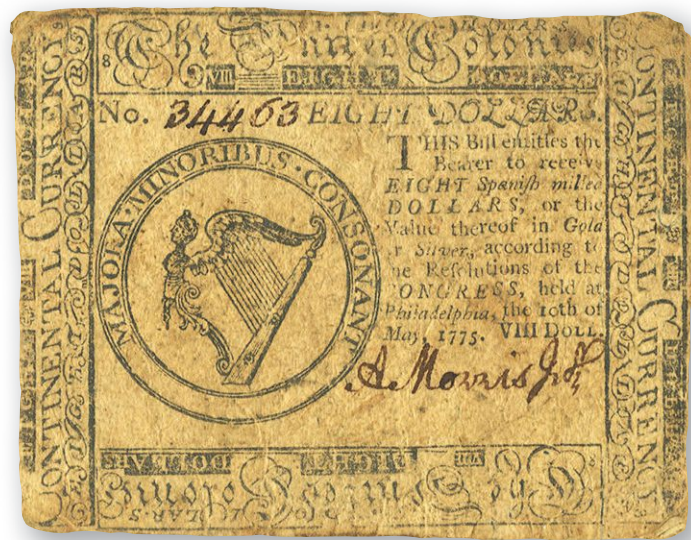 The United Colonies
VIII EIGHT DOLLARS
CONTINENTAL CURRENCY
No. 34463 EIGHT DOLLARS.
MAJORA · MINORIBUS · CONSONANT
THIS Bill entitles the
Bearer to receive
EIGHT Spanish milled
DOLLARS, or the
Value thereof in Gold
or Silver, according to
he Resolutions of the
CONGRESS, held at
Philadelphia, the 10th of
May, 1775. VIII DOLL.
A Morris
CONTINENTAL CURRENCY
EIGHT
DOLLARS